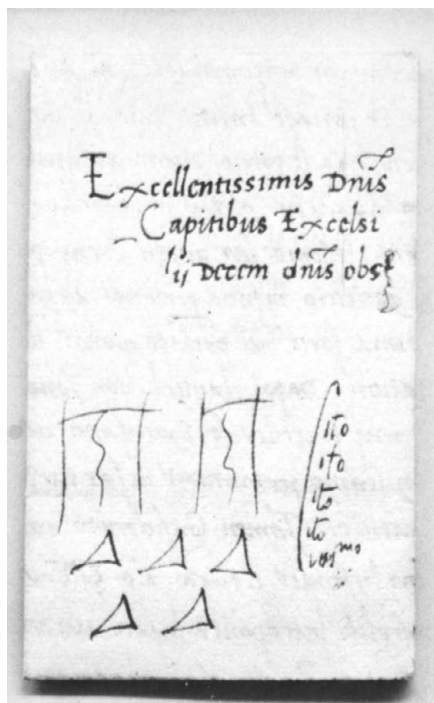 Excellentissimis Dnis
Capitibus Excelsi
ij Decem dnis obs
ito
ito
ito
ito